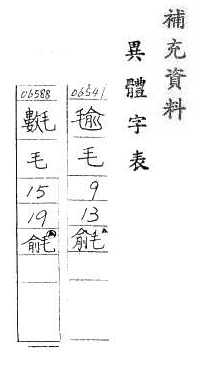 補充資料
異體字表
06541
毛
9
13
毹
06588
毛
15
19
毹